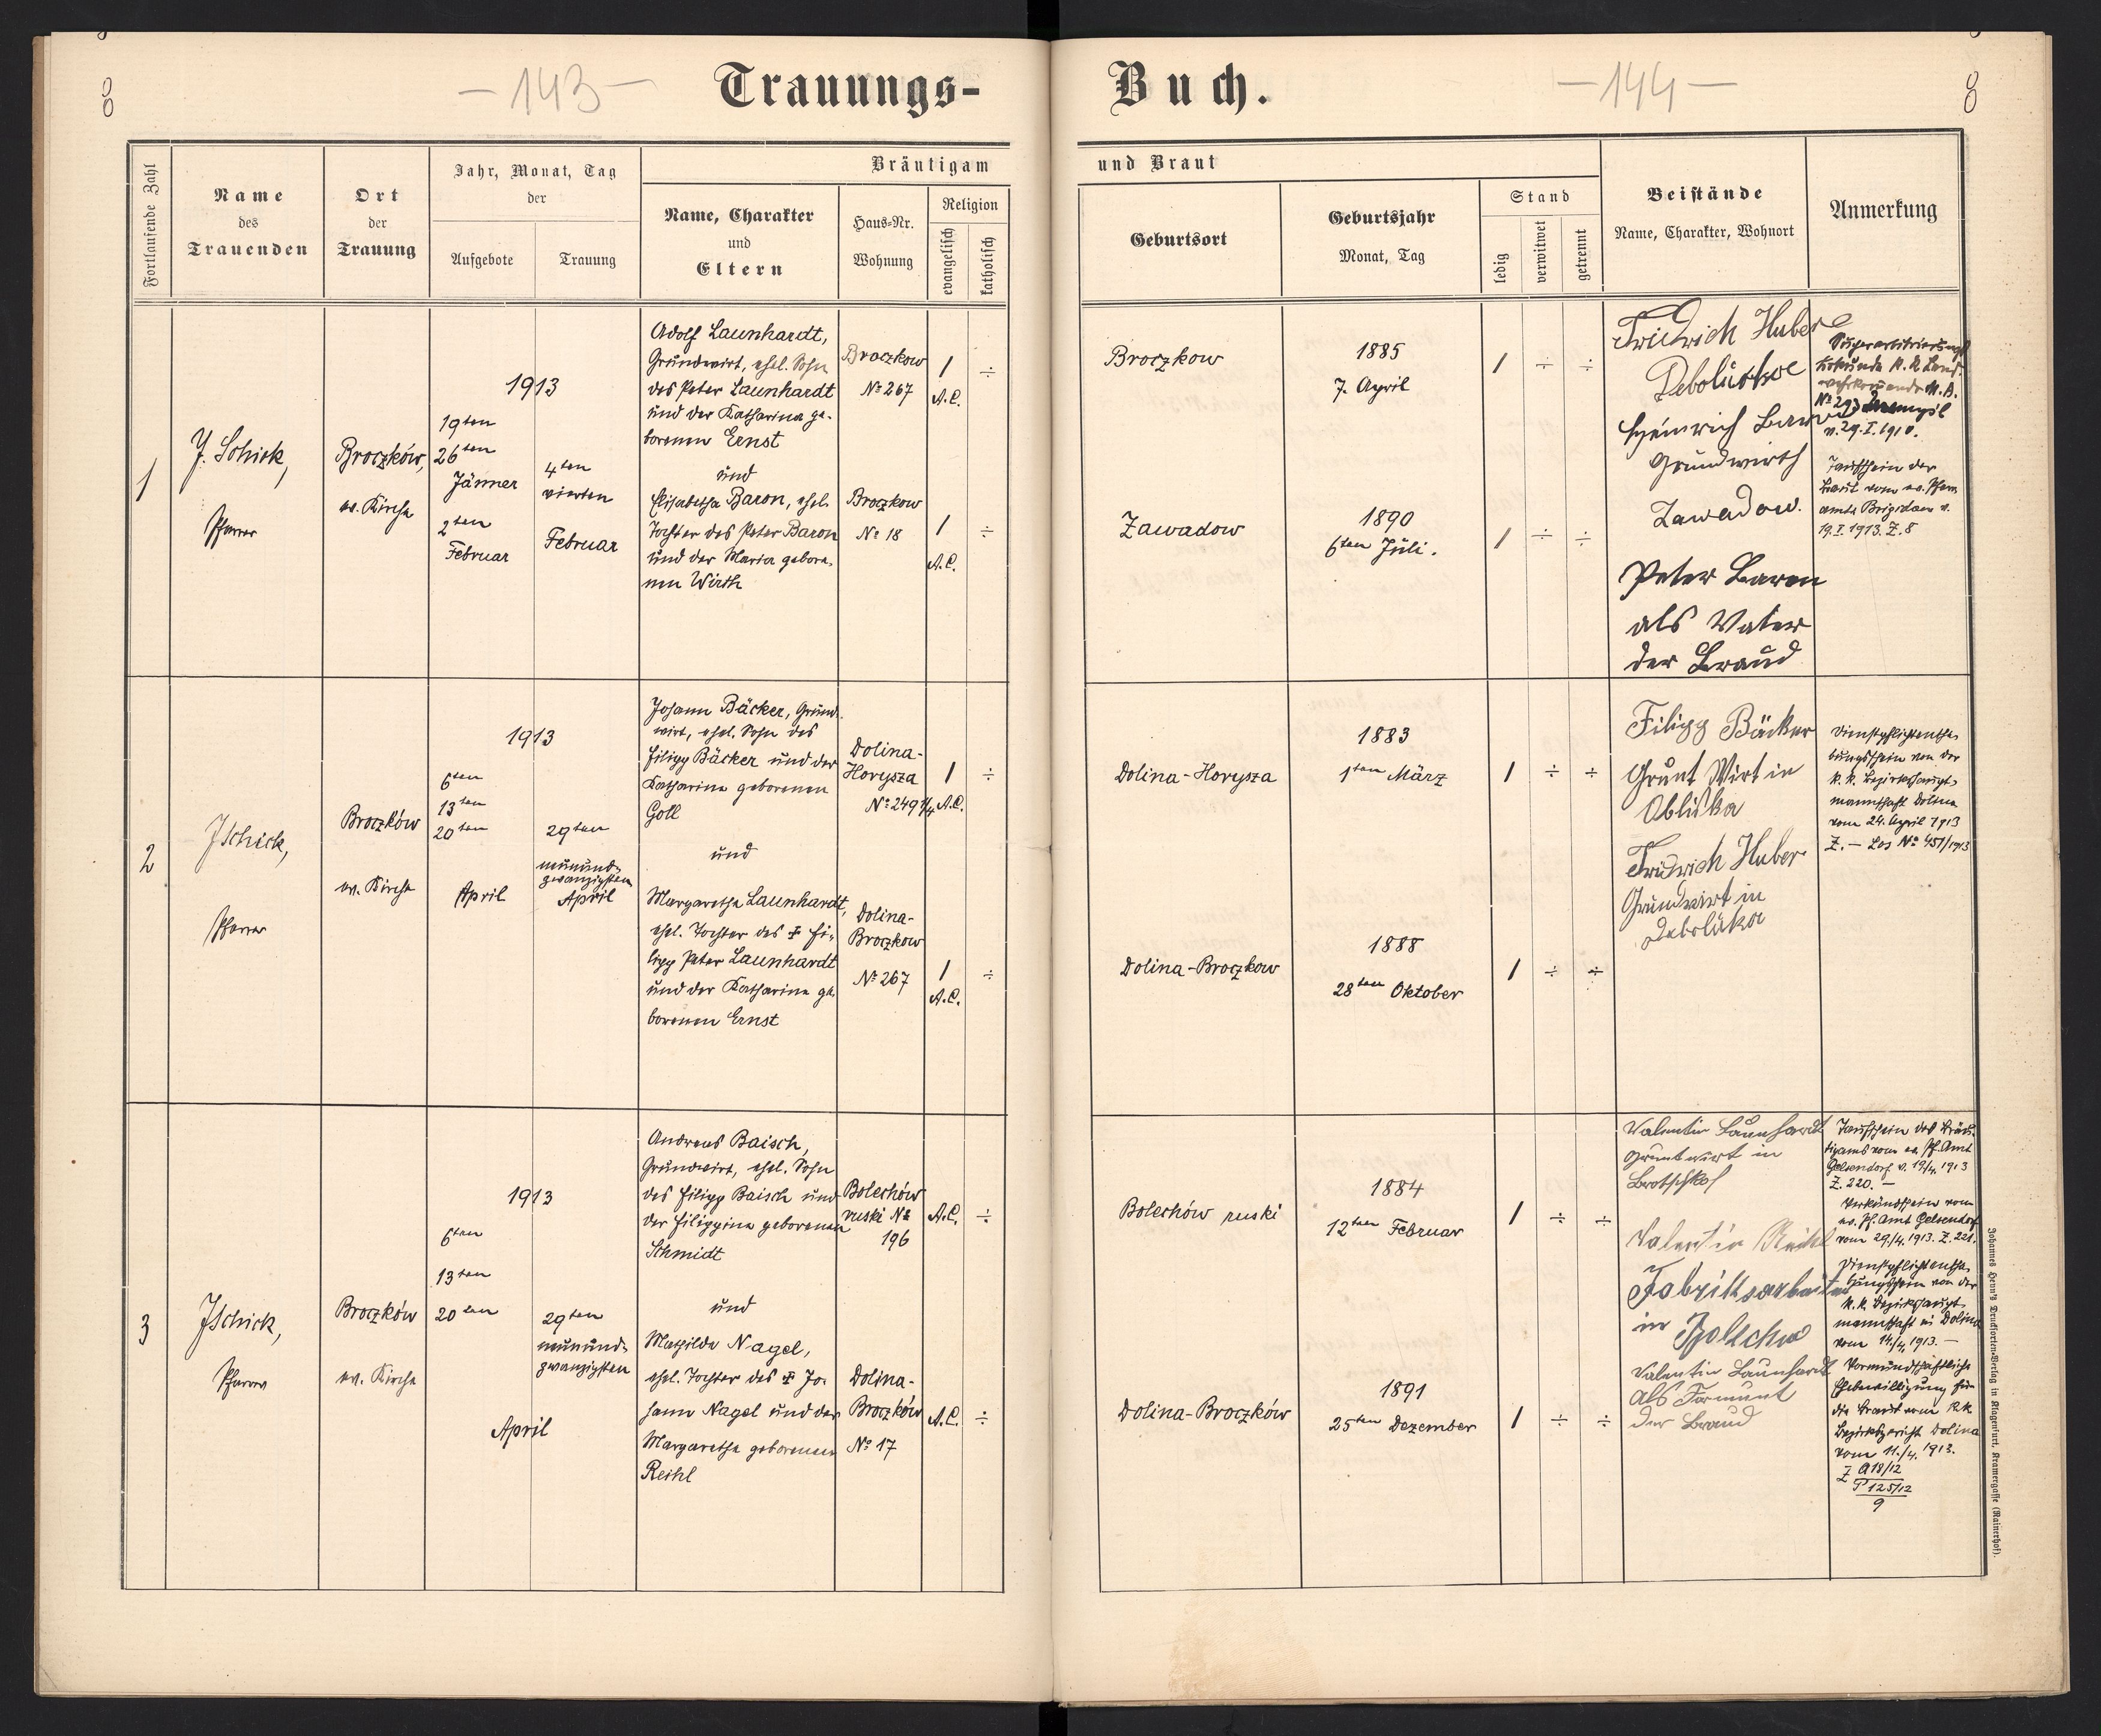 8
— 143 —
Trauungs-
Buch.
— 144 —
8
Fortlaufende Zahl
Name
des
Trauenden
Ort
der
Trauung
Jahr, Monat, Tag
der
Aufgebote
Trauung
Bräutigam
Name, Charakter
und
Eltern
Haus-Nr.
Wohnung
Religion
evangelisch
katholisch
und Braut
Geburtsort
Geburtsjahr
Monat, Tag
Stand
ledig
verwitwet
getrennt
Beistände
Name, Charakter, Wohnort
Anmerkung
1
J. Schick,
Pfarrer
Broczków,
ev. Kirche
1913
19ten
26ten
Jänner
2ten
Februar
4ten
vierten
Februar
Adolf Launhardt,
Grundwirt, ehel. Sohn
des Peter Launhardt
und der Katharina ge-
borenen Ernst
und
Elisabetha Baron, ehel.
Tochter des Peter Baron
und der Maria gebore-
nen Wirth
Broczkow
No 267
Broczkow
No 18
1
A.C.
÷
1
A.C.
÷
Broczkow
Zawadow
1885
7. April
1890
6ten Juli.
1 ÷ ÷
1 ÷ ÷
Friedrich Huber
Heinrich
Grundwirth
Zawadow.
Peter Baron
als Vater
der Braud
Superarbitrierungs
Urkunde K. K. Land-
No 29
v. 29.I.1910.
Taufschein der
Braut vom ev. Pfarr
amte Brigidau v.
19.I.1913. Z. 8
2
JSchick,
Pfarrer
Broczków
ev. Kirche
1913
6ten
13ten
20ten
April
29ten
neunund-
zwanzigsten
April
Johann Bäcker, Grund-
wirt, ehel. Sohn des
Filipp Bäcker und der
Katharina geborenen
Goll
und
Margaretha Launhardt,
ehel. Tochter des ‡ Fi-
lipp Peter Launhardt
und der Katharina ge-
borenen Ernst
Dolina-
Horysza
No 249 1/4
Dolina-
Broczkow
No 267
1
A.C.
÷
1
A.C.
÷
Dolina-Horysza
Dolina-Broczkow
1883
1ten März
1888
28ten Oktober
1 ÷ ÷
1 ÷ ÷
Filipp Bäcker
Grunt Wirt in
Obliska
Fridrich Huber
Grundwirt in
Dienstpflichtenthe-
bungsschein von der
k. k. Bezirkshaupt-
mannschaft Dolina
vom 24. April 1913
Z. — Los No 451/1913
3
JSchick,
Pfarrer
Broczków
ev. Kirche
1913
6ten
13ten
20ten
29ten
neunund-
zwanzigsten
April
Andreas Baisch,
Grundwirt, ehel. Sohn
des Filipp Baisch und
der Filippina geborenen
Schmidt
und
Mathilde Nagel,
ehel. Tochter des ‡ Jo-
hann Nagel und der
Margaretha geborenen
Reihl
Bolechów
ruski No
196
Dolina-
Broczków
No 17
A.C.
÷
A.C.
÷
Bolechów ruski
Dolina-Broczków
1884
12ten Februar
1891
25ten Dezember
1 ÷ ÷
1 ÷ ÷
Valentin Launhardt
Gruntwirt in
Brotschkof
Valentin Reihl
Fabriksarbeiter
in Bolechow
Valentin Launhardt
als Formunt
der Braud
Taufschein des Bräu-
tigams vom ev. Pf. Amt
Gelsendorf v. 19/4. 1913
Z. 220. —
Verkündschein vom
ev. Pf. Amt Gelsendorf
vom 29./4. 1913. Z. 221.
Dienstpflichtenthe-
bungsschein von der
k. k. Bezirkshaupt-
mannschaft in Dolina
vom 14/4. 1913. —
Vormundschäftliche
Ehebewilligung für
die Braut vom k k
Bezirksgericht Dolina
vom 11./4. 1913.
Z A 18/12
P 125/12
9
Johannes Heyn's Drucksorten-Verlag in Klagenfurt, Kramergasse (Rainerhof).